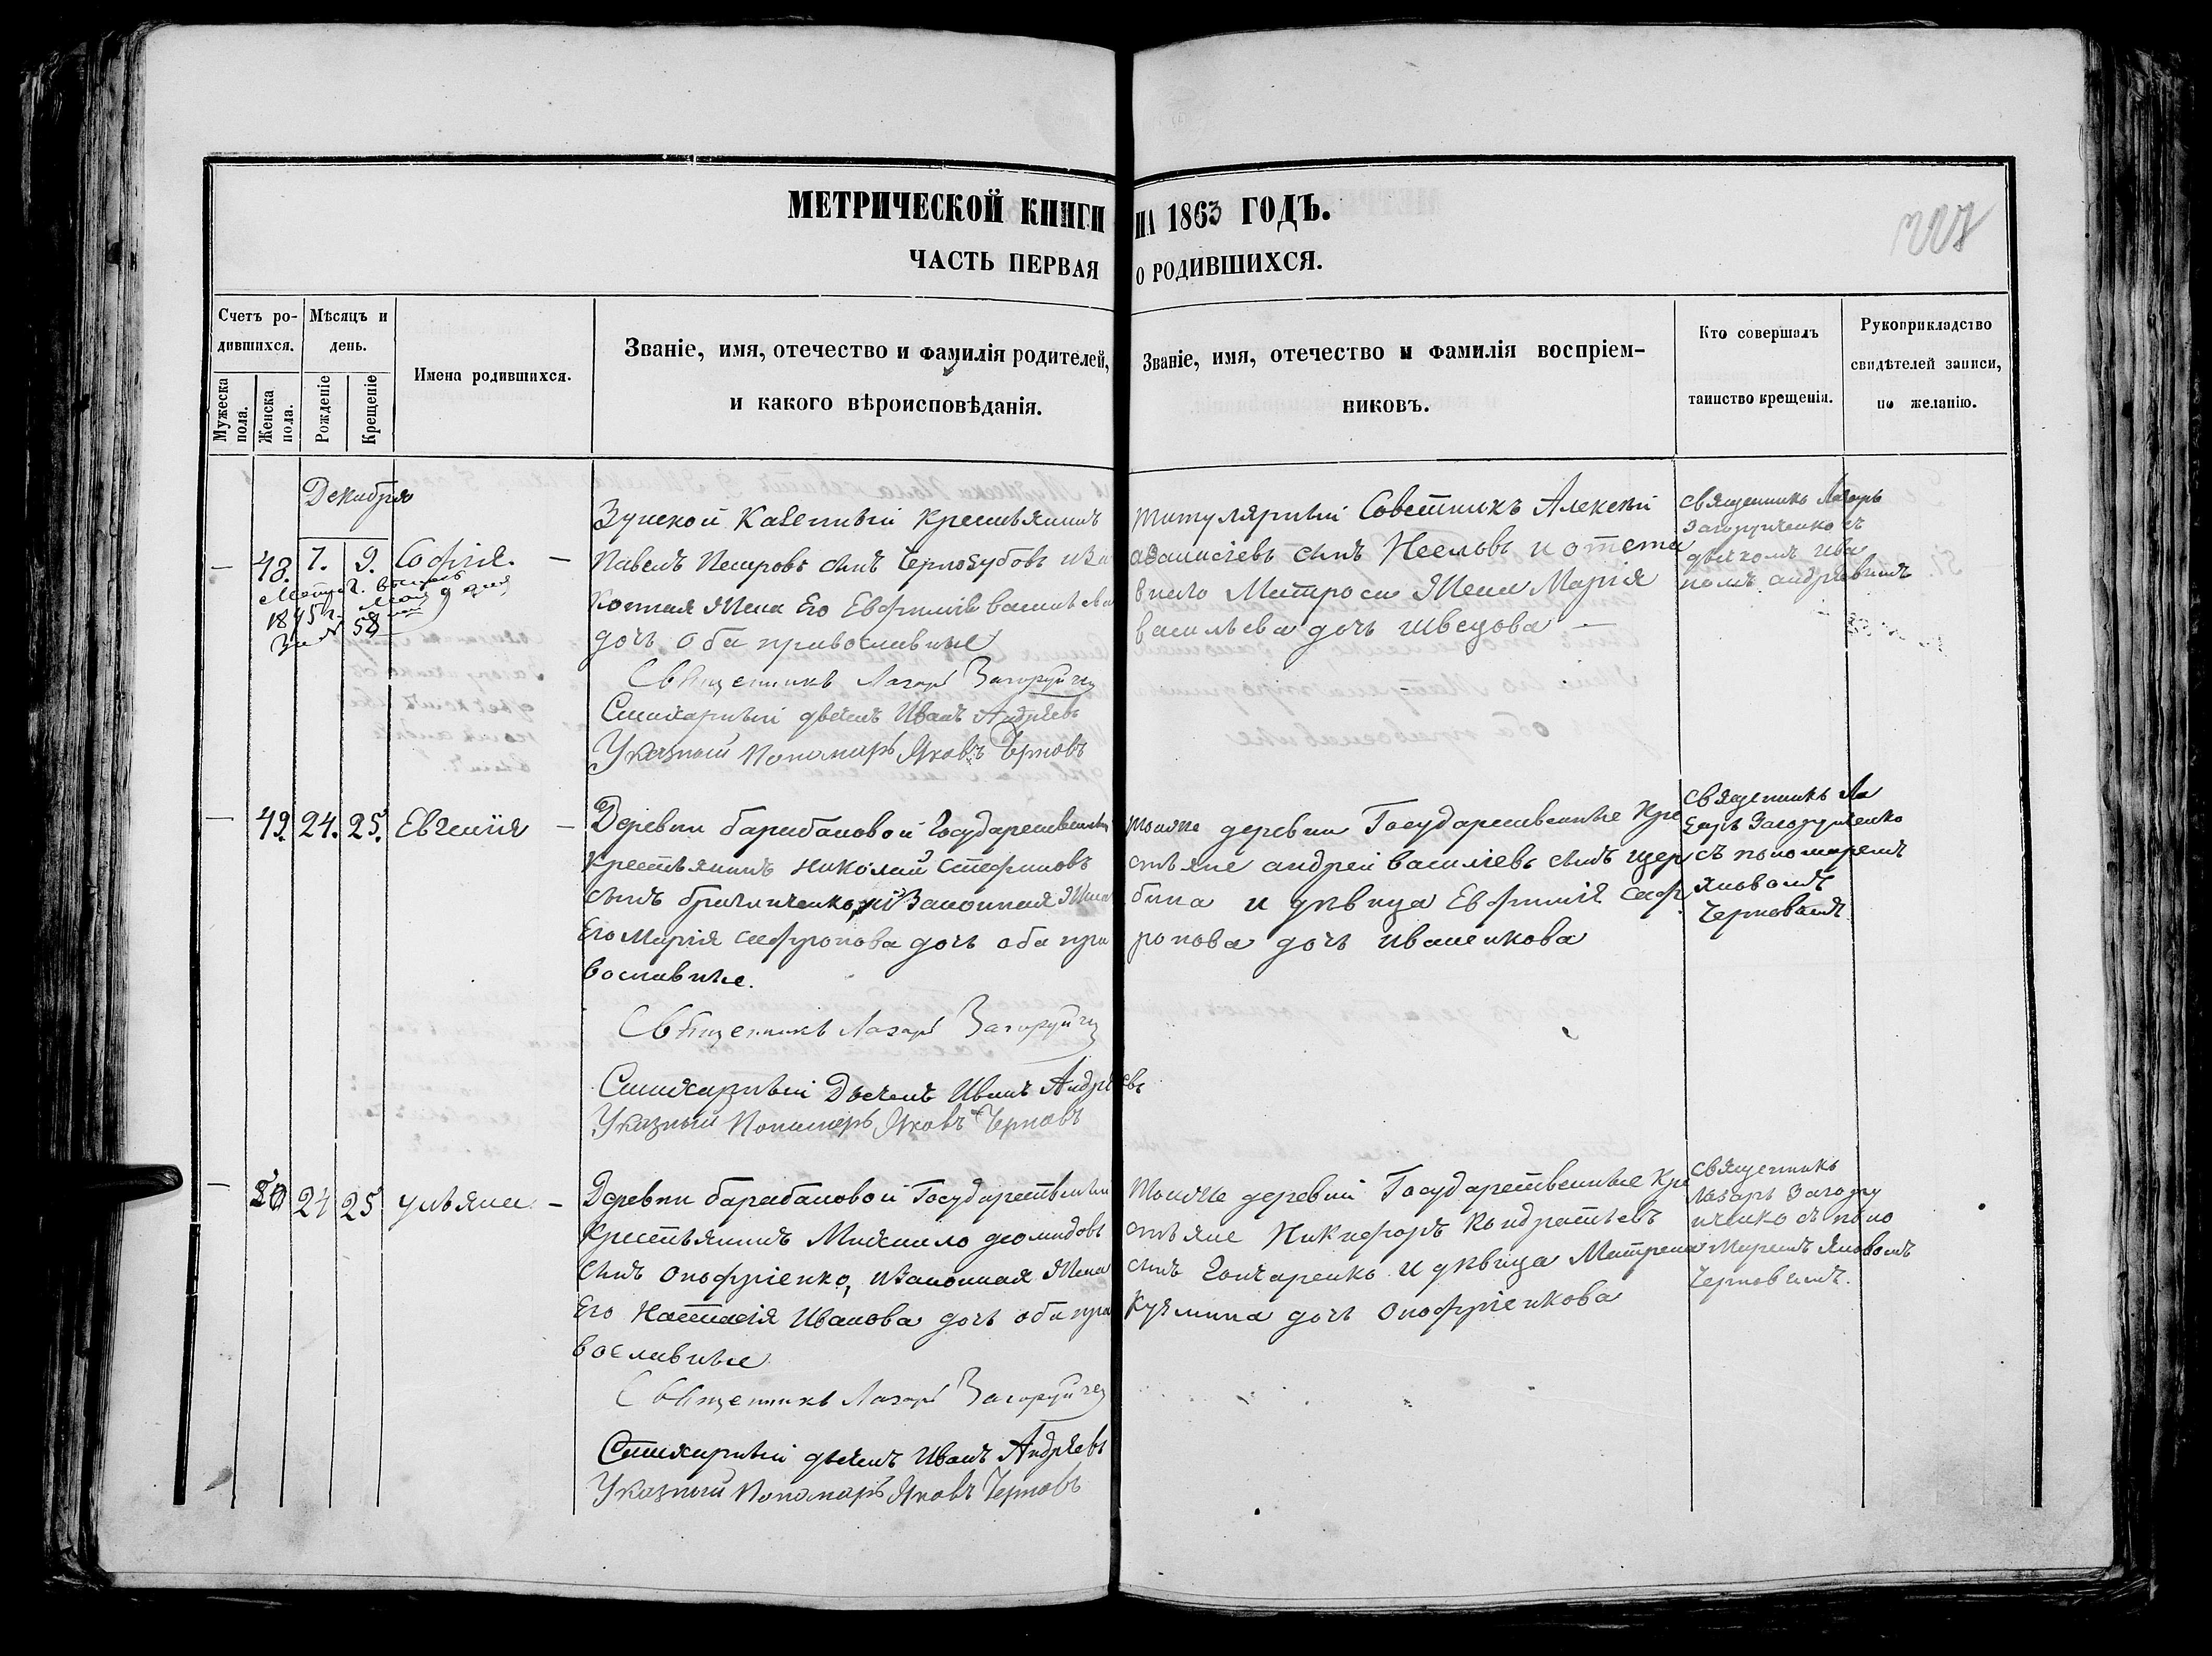 МЕТРИЧЕСКОЙ КНИГИ НА 1863 ГОДЪ.
ЧАСТЬ ПЕРВАЯ О РОДИВШИХСЯ.
Счетъ ро-
дившихся.
Мужеска пола.
Женска пола.
Мѣсяцъ и
день.
Рожденіе
Крещеніе
Имена родившихся.
Званіе, имя, отечество и фамилія родителей,
и какого вѣроисповѣданія.
Званіе, имя, отечество и фамилія воспріем-
никовъ.
Кто совершалъ
таинство крещенія.
Рукоприкладство
свидѣтелей записи,
по желанію.
Декабря
— 48. 7. 9. Софія. —
1845 г.
За № 58
Казенный Крестьянинъ
Павелъ Петровъ сынъ Чернозубовъ и За
конная Жена Его Евфимія
дочь оба православные
Священникъ Лазарь Загоруйч
Стихарный дьячекъ Иванъ Андрѣевъ
Указный Пономарь Яковъ Черновъ
Титулярный Советникъ Алексѣй
сынъ Нееловъ и
Матроса Жена Марія
васильева дочь Швецова —
священникъ Лазарь
Загоруйченко съ
дьячкомъ Ива
номъ андрѣевымъ
— 49. 24. 25. Евгенія —
Деревни барабановой Государственный
Крестьянинъ Николай Стефановъ
сынъ и Законная Жена
Его Марія сафронова дочь оба пра
вославные.
Священникъ Лазарь Загоруйч
Стихарный Дьячекъ Иванъ Андрѣевъ
Указный Пономарь Яковъ Черновъ
тояже деревни Государственные Кре
стьяне андрей василіевъ сынъ щер
бина и дѣвица Евфимія Саф
ронова дочь иваненкова
священникъ Ла
зарь Загоруйченко
съ пономаремъ
Яковомъ
Черновымъ.
— 50 24 25 ульяна —
Деревни барабановой Государственный
Крестьянинъ Михаило деомидовъ
сынъ Онофріенко, и Законная Жена
Его Настасія Иванова дочь оба пра
вославные
Священникъ Лазарь Загоруйч
Стихарный дьячекъ Иванъ Андрѣевъ
Указный Пономарь Яковъ Черновъ
Тояже деревни Государственные Кре
стьяне Никифоръ Кондратьевъ
сынъ Гончаренко и дѣвица Матрена
Кузмина дочь Онофріенкова
священникъ
Лазарь Загору
йченко съ поно
маремъ Яковомъ
Черновымъ.